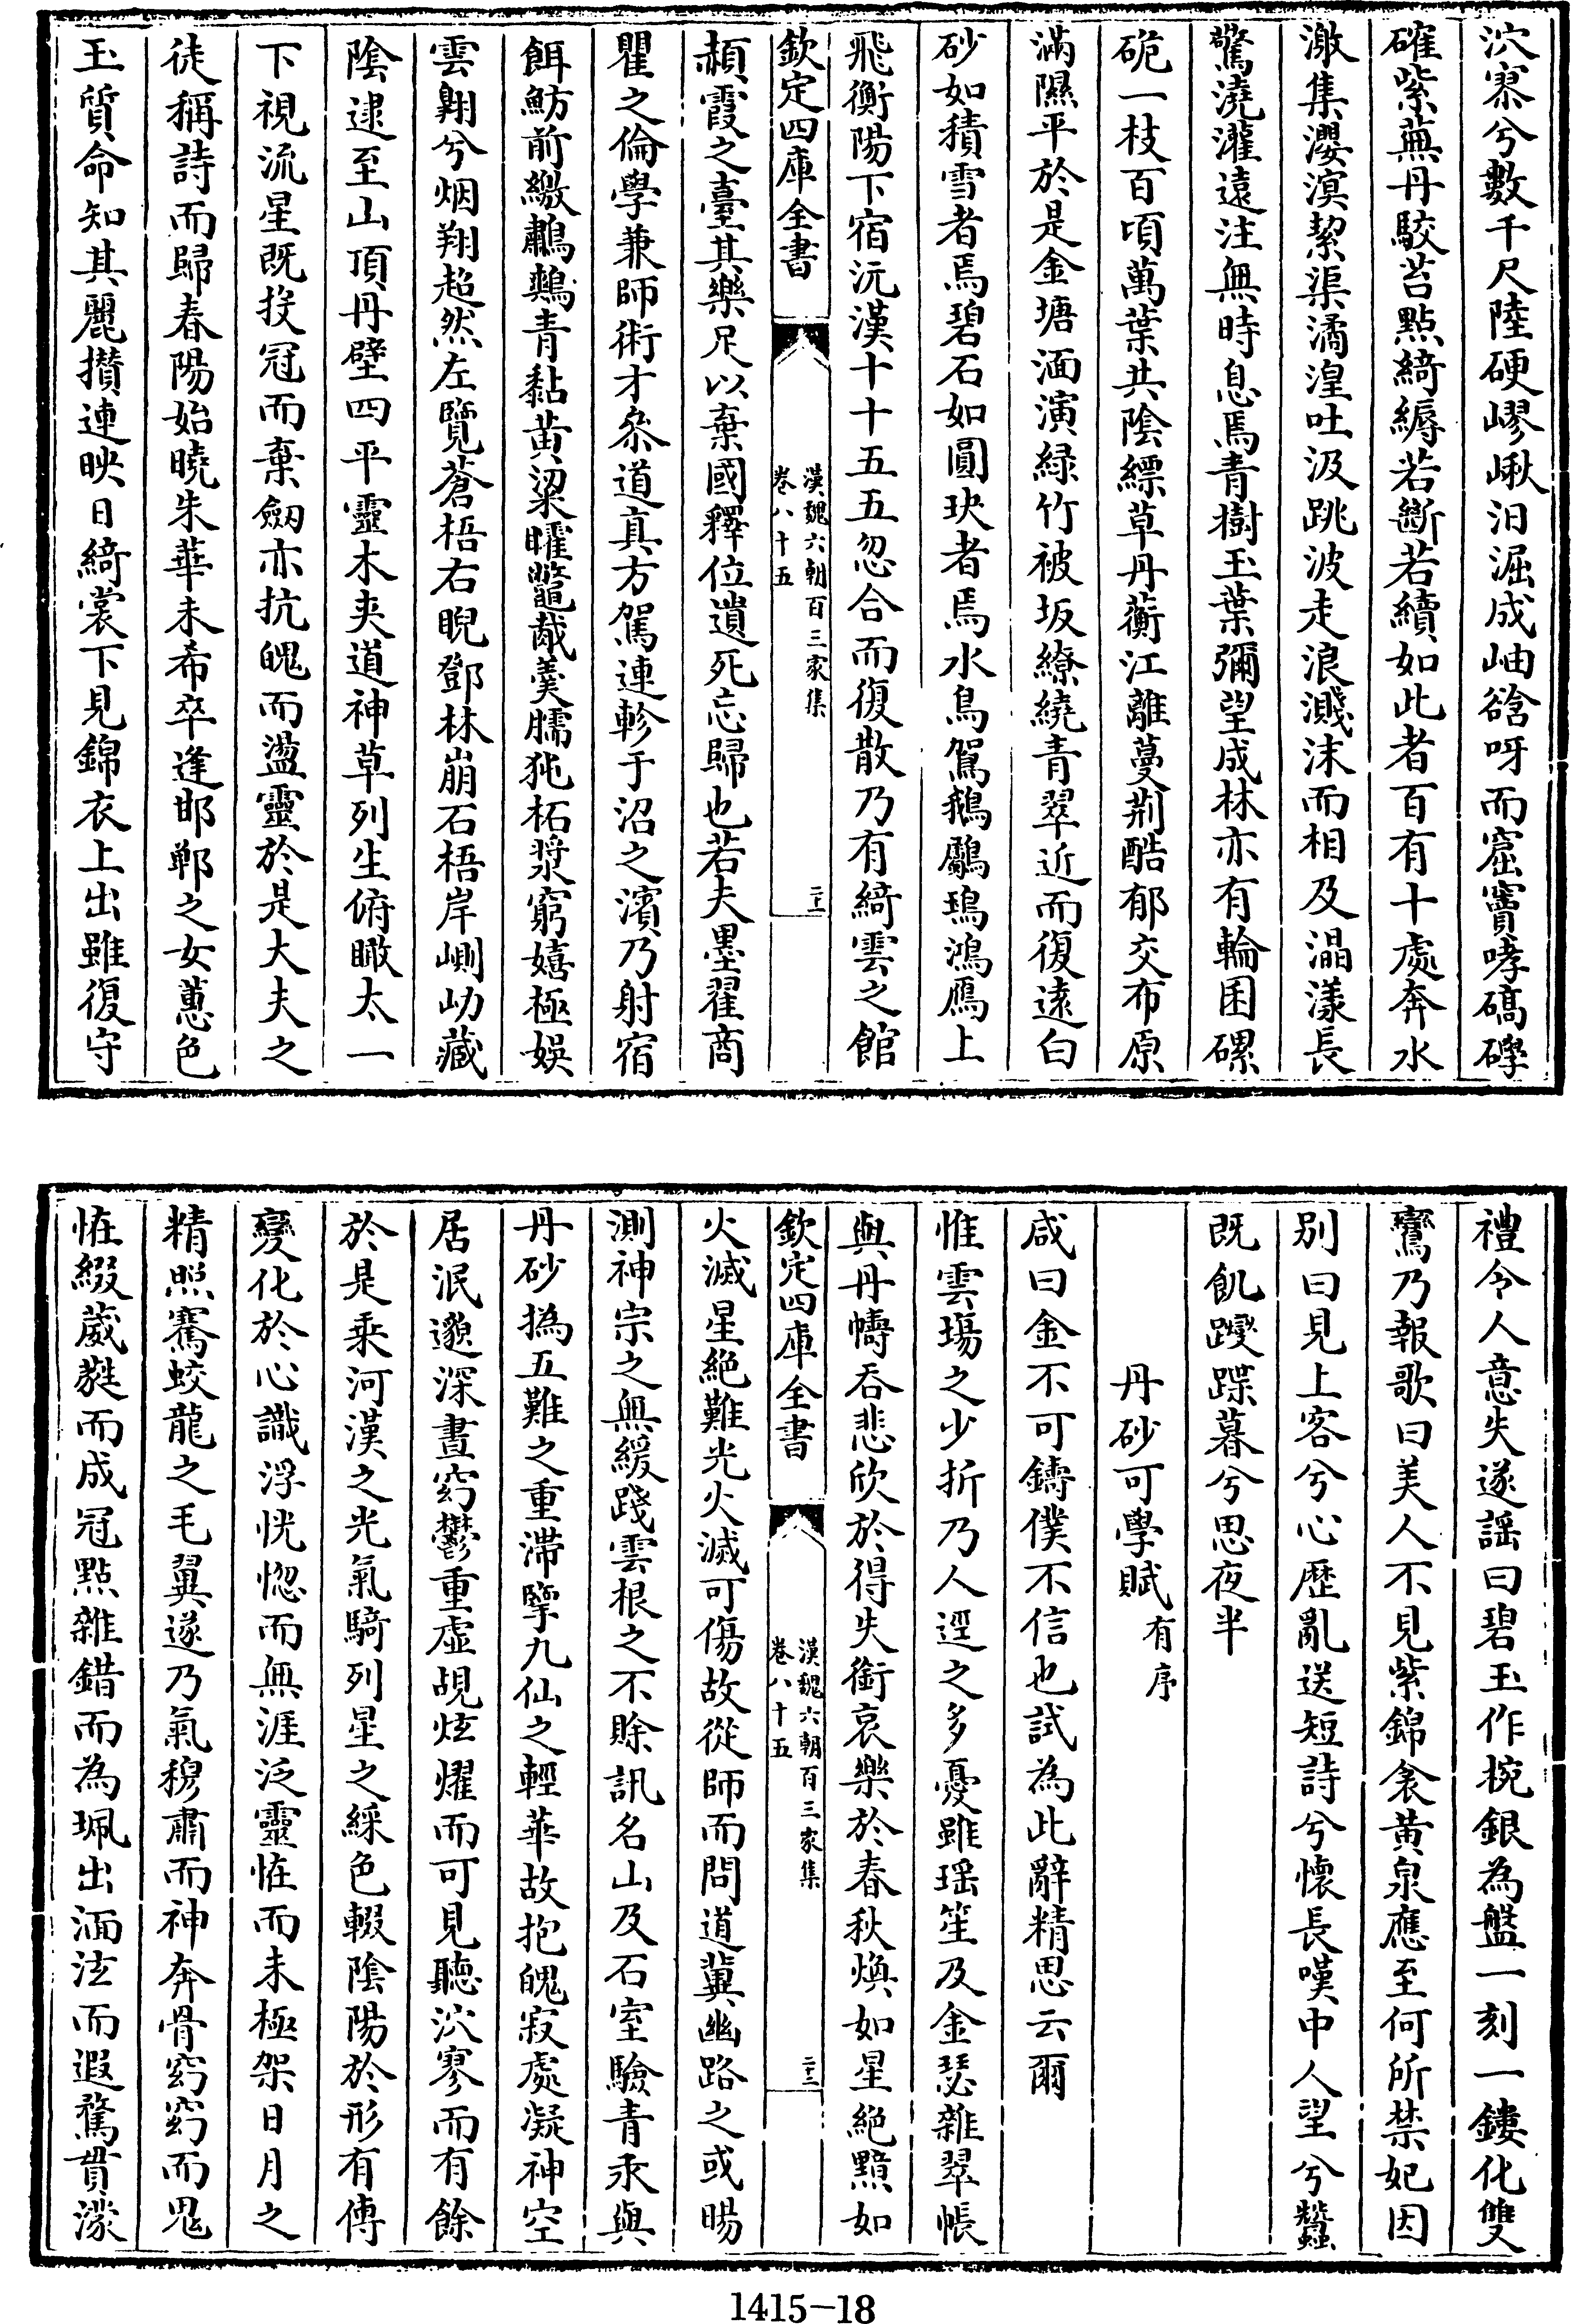 泬寥兮數千尺陸硬嵺㟋汩淈成岫谽呀而窟竇哮礄礐
確紫蕪丹駮苔點綺縟若斷若續如此者百有十處奔水
潎集瀴溟絜渠潏湟吐汲跳波走浪濺沫而相及㴓漾長
驚澆灌遠注無時息焉青樹玉葉彌望成林亦有輪囷磥
硊一枝百頃萬葉共陰縹草丹蘅江離蔓荆酷郁交布原
滿隰平於是金塘湎演緑竹被坂繚繞青翠近而復遠白
砂如積雪者焉碧石如圓玦者焉水鳥駕鵝鸀鳿鴻鴈上
飛衡陽下宿沅漢十十五五忽合而復散乃有綺雲之館
欽定四庫全書
漢魏六朝百三家集
卷八十五
二十一
赬霞之臺其樂足以棄國釋位遺死忘歸也若夫墨翟商
瞿之倫學兼師術才叅道真方駕連軫于沼之濱乃射宿
餌魴前繳鸕鷀青黏黄粱臛鼈胾羹臑㹠柘漿窮嬉極娱
雲翺兮烟翔超然左覽蒼梧右睨鄧林崩石梧岸㟐屻藏
陰逮至山頂丹壁四平靈木夾道神草列生俯瞰太一
下視流星既投冠而棄劔亦抗魄而盪靈於是大夫之
徒稱詩而歸春陽始曉朱華未希卒逢邯鄲之女蕙色
玉質命知其麗攢連映日綺裳下見錦衣上出雖復守
禮令人意失遂謡曰碧玉作椀銀為盤一刻一鏤化雙
鸞乃報歌曰美人不見紫錦衾黄泉應至何所禁妃因
别曰見上客兮心歴亂送短詩兮懷長嘆中人望兮蠶
既飢躞蹀暮兮思夜半
丹砂可學賦有序
咸曰金不可鑄僕不信也試為此辭精思云爾
惟雲塲之少折乃人逕之多憂雖瑶笙及金瑟雜翠帳
與丹幬吞悲欣於得失銜哀樂於春秋煥如星絶黯如
欽定四庫全書
漢魏六朝百三家集
卷八十五
二十二
火滅星絶難光火滅可傷故從師而問道冀幽路之或暘
測神宗之無緩踐雲根之不賒訊名山及石室驗青汞與
丹砂撝五難之重滯擥九仙之輕華故抱魄寂處凝神空
居泯邈深晝窈鬱重虚覘炫燿而可見聽泬寥而有餘
於是乘河漢之光氣騎列星之綵色輟陰陽於形有傳
變化於心識浮恍惚而無涯泛靈恠而未極架日月之
精照騫蛟龍之毛翼遂乃氣穆肅而神奔骨窈窈而鬼
恠綴葳蕤而成冠點雜錯而為珮出湎泫而遐騖貫濛
1415-18